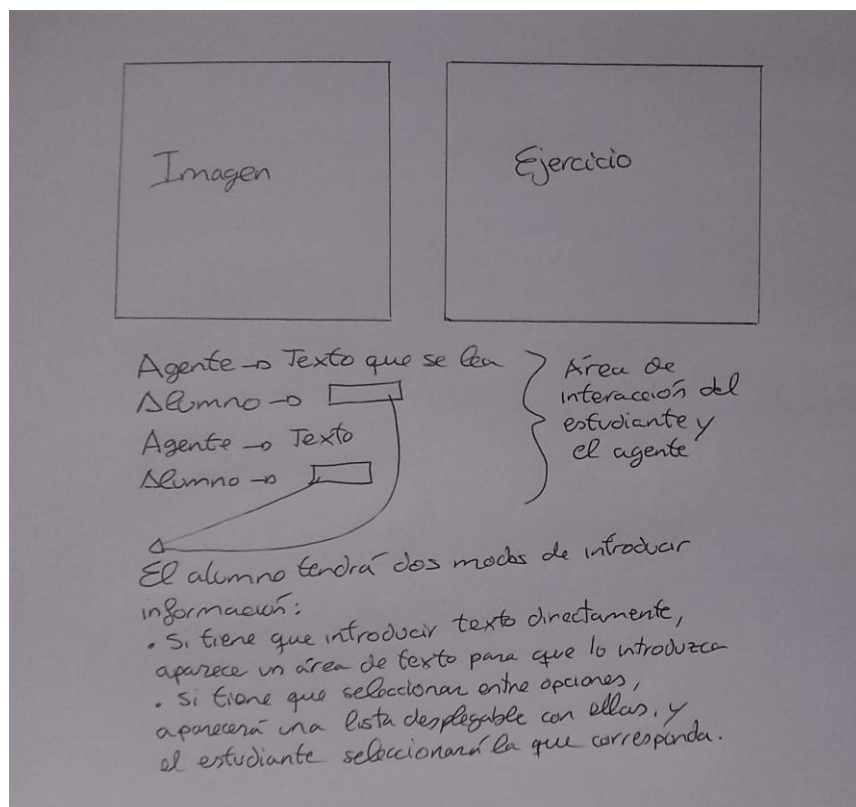 Imagen
Ejercicio
Agente → Texto que se lea
Alumno →
Agente → Texto
Alumno →
Área de
interacción del
estudiante y
el agente
El alumno tendrá dos modos de introducir
información:
• Si tiene que introducir texto directamente,
aparece un área de texto para que lo introduzca
• Si tiene que seleccionar entre opciones,
aparecerá una lista desplegable con ellas, y
el estudiante seleccionará la que corresponda.